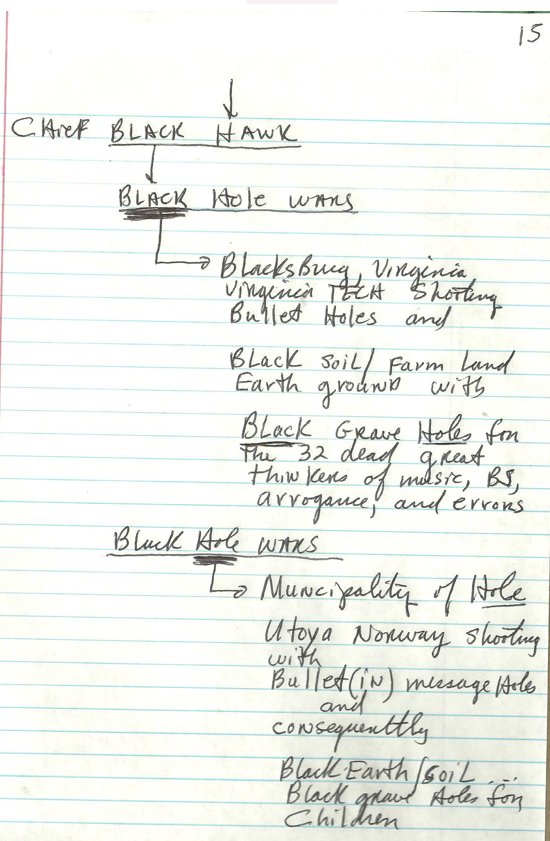 15
CHief BLACK HAWK
BLACK Hole WARS
BlacksBurg, Virginia
Virginia TECH Shooting
Bullet Holes and
BLACK Soil/ Farm Land
Earth ground with
BLack Grave Holes for
The 32 dead great
thinkers of music, BS,
arrogance, and errors
Black Hole WARS
Muncipality of Hole
Utoya Norway shooting
with
Bullet(iN) message Holes
and
consequenttly
Black Earth/soil ...
Black grave Holes for
Children